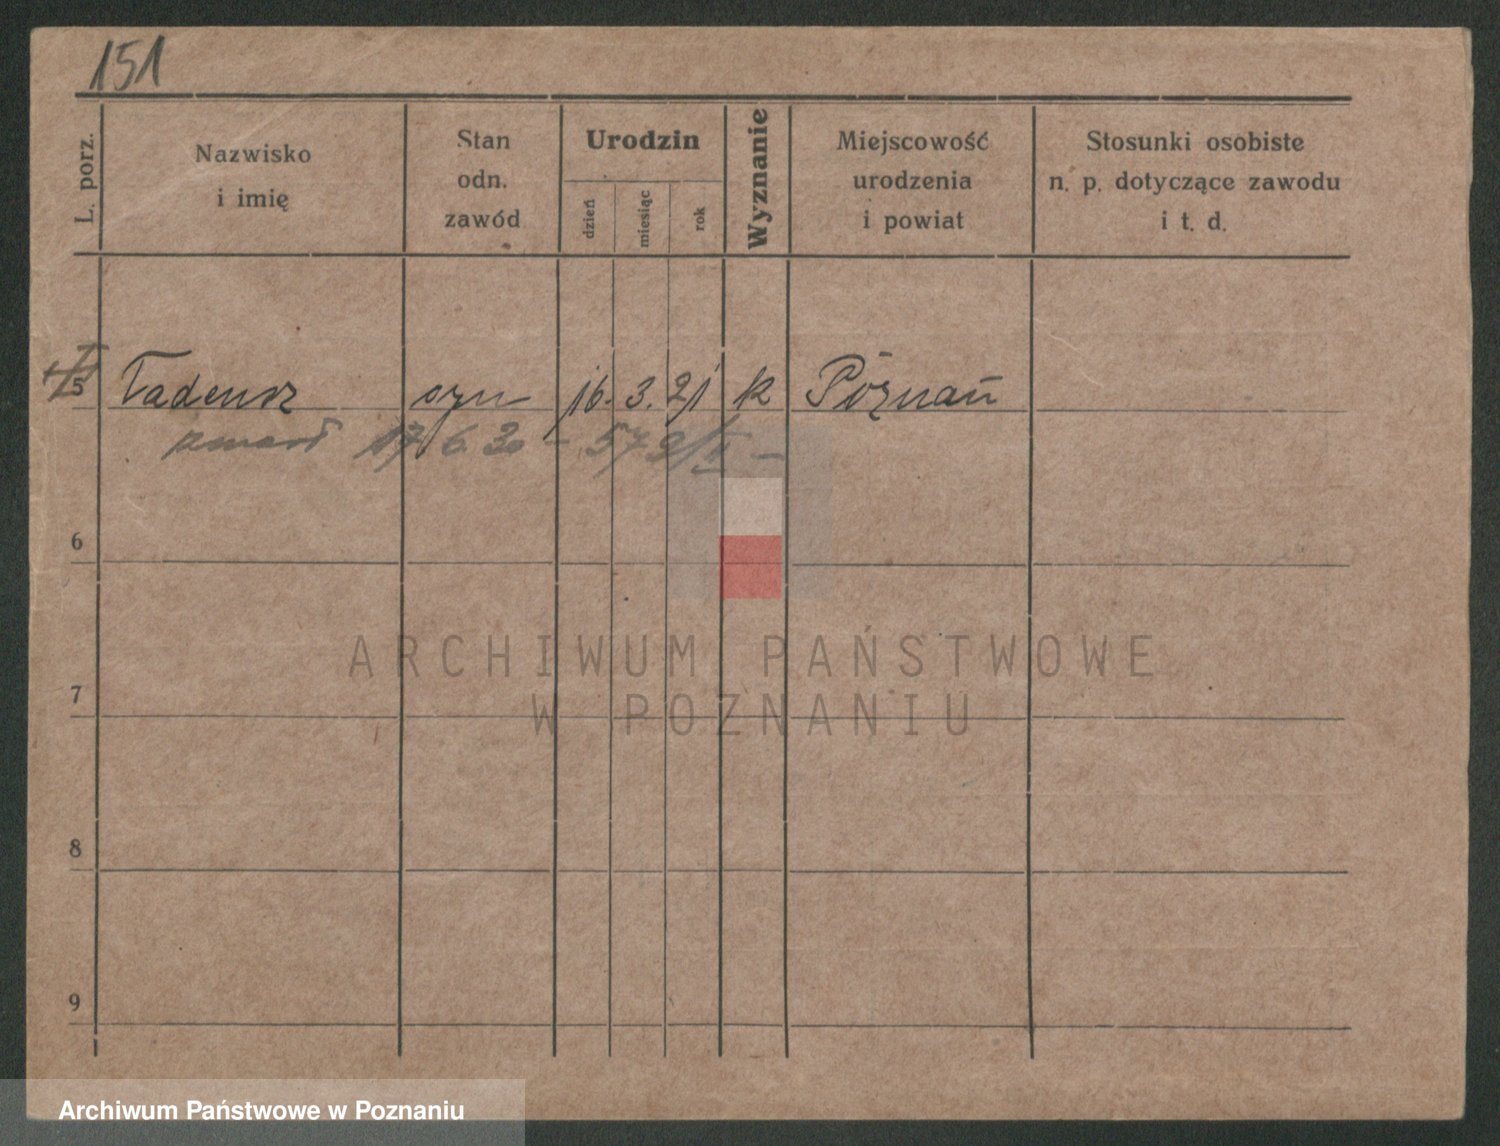 151
L. porz.
Nazwisko
i imię
Stan
odn.
zawód
Urodzin
dzień
miesiąc
rok
Wyznanie
Miejscowość
urodzenia
i powiat
Stosunki osobiste
n. p. dotyczące zawodu
i t. d.
5 Tadeusz syn 16. 3. 21 k Poznań
zmarł 17 6. 30 - 579/II -
6
7
8
9
ARCHIWUM PAŃSTWOWE
W POZNANIU
Archiwum Państwowe w Poznaniu